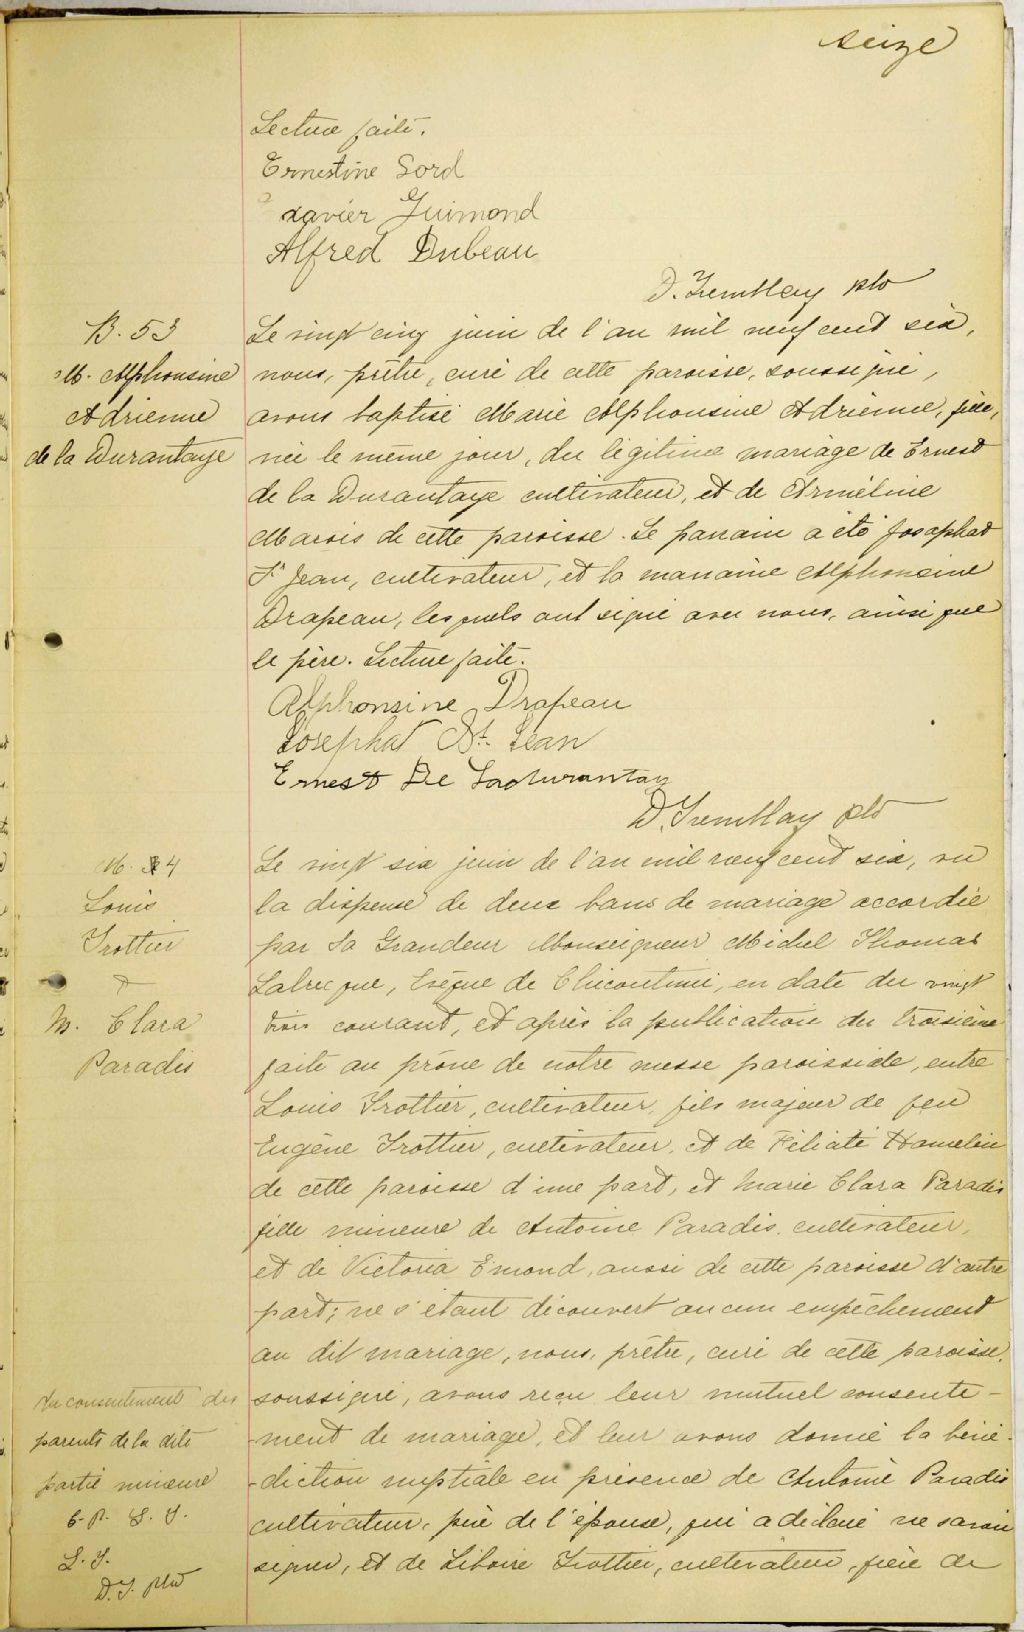 seize
Lecture faite.
Ernestine Sord
Xavier Guimond
Alfred Dubeau
D. Tremblay ptr
B. 53
M. Alphonsine
Adrienne
de la Durantaye
Le vingt cinq juin de l'an mil neuf cent six,
nous, prêtre, curé de cette paroisse, soussigné,
avons baptisé Marie Alphonsine Adrienne, fille,
née le même jour, du légitime mariage de Ernest
de la Durantaye cultivateur, et de Arméline
Marois de cette paroisse. Le parrain a été Josaphat
St Jean, cultivateur, et la marraine Alphonsine
Drapeau, lesquels ont signé avec nous, ainsi que
le père. Lecture faite.
Alphonsine Drapeau
Josephat St. Jean
Ernest De Ladurantay
D. Tremblay ptr
M. 4
Louis
Trottier
&
M. Clara
Paradis
Le vingt six juin de l'an mil neuf cent six, vu
la dispense de deux bans de mariage accordée
par Sa Grandeur Monseigneur Michel Thomas
Labrecque, Evêque de Chicoutimi, en date du vingt
trois courant, et après la publication du troisième
faite au prône de notre messe paroissiale, entre
Louis Trottier, cultivateur, fils majeur de feu
Eugène Trottier, cultivateur, et de Félicité Hamelin
de cette paroisse d'une part, et Marie Clara Paradis
fille mineure de Antoine Paradis, cultivateur,
et de Victoria Emond, aussi de cette paroisse d'autre
part; ne s'étant découvert aucun empêchement
au dit mariage, nous, prêtre, curé de cette paroisse,
soussigné, avons reçu leur mutuel consente-
-ment de mariage, et leur avons donné la béné-
-diction nuptiale en présence de Antoine Paradis
cultivateur, père de l'épouse, qui a déclaré ne savoir
signer, et de Liboire Trottier, cultivateur, frère de
du consentement des
parents de la dite
partie mineure
L. T.
D. T. ptr